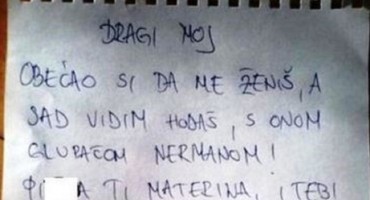 DRAGI MOJ
OBEĆAO SI DA ME ŽENIŠ, A
SAD VIDIM HODAŠ, S ONOM
GLUPAČOM NERMANOM!
TI MATERINA, I TEBI